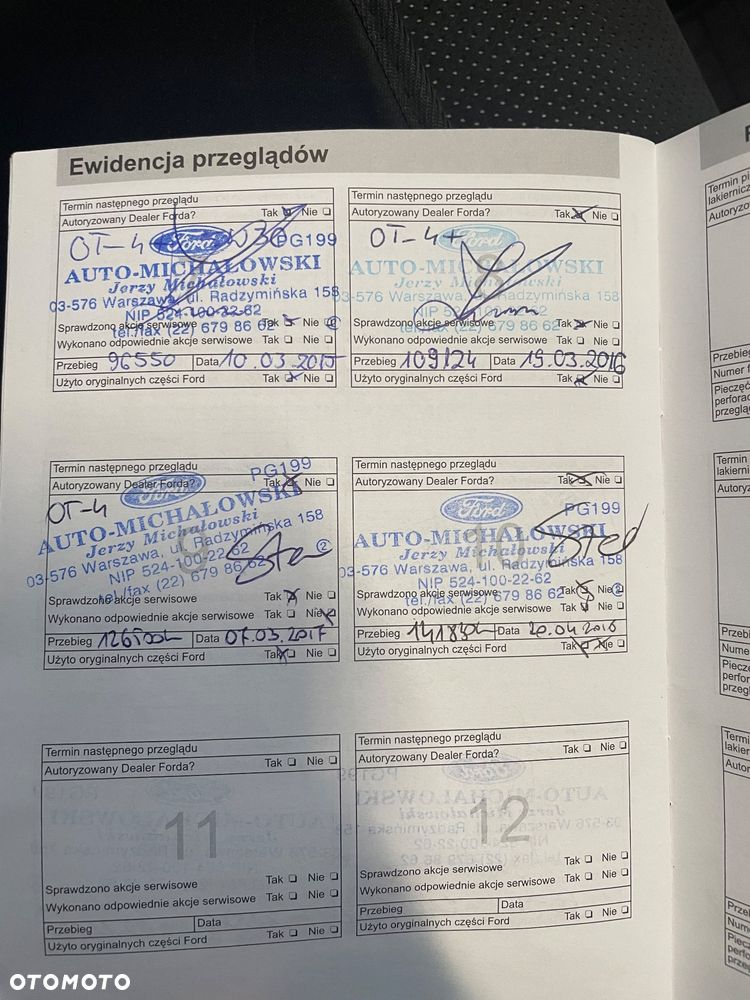 Ewidencja przeglądów
Termin następnego przeglądu
Autoryzowany Dealer Forda? Tak Nie
OT-4+
Ford
PG199
AUTO-MICHAŁOWSKI
Jerzy Michałowski
03-576 Warszawa, ul. Radzymińska 158
NIP 524-100-22-62
tel./fax (22) 679 86 62
Sprawdzono akcje serwisowe Tak Nie
Wykonano odpowiednie akcje serwisowe Tak Nie
Przebieg 96550 Data 10.03.2015
Użyto oryginalnych części Ford Tak Nie
Termin następnego przeglądu
Autoryzowany Dealer Forda? Tak Nie
OT-4+
Ford
8
AUTO-MICHAŁOWSKI
Jerzy Michałowski
03-576 Warszawa, ul. Radzymińska 158
NIP 524-100-22-62
tel./fax (22) 679 86 62
Sprawdzono akcje serwisowe Tak Nie
Wykonano odpowiednie akcje serwisowe Tak Nie
Przebieg 109124 Data 19.03.2016
Użyto oryginalnych części Ford Tak Nie
Termin następnego przeglądu
Autoryzowany Dealer Forda? Tak Nie
OT-4
Ford
PG199
9
AUTO-MICHAŁOWSKI
Jerzy Michałowski
03-576 Warszawa, ul. Radzymińska 158
NIP 524-100-22-62
tel./fax (22) 679 86 62
2
Sprawdzono akcje serwisowe Tak Nie
Wykonano odpowiednie akcje serwisowe Tak Nie
Przebieg Data 07.03.2017
Użyto oryginalnych części Ford Tak Nie
Termin następnego przeglądu
Autoryzowany Dealer Forda? Tak Nie
Ford
PG199
10
AUTO-MICHAŁOWSKI
Jerzy Michałowski
03-576 Warszawa, ul. Radzymińska 158
NIP 524-100-22-62
tel./fax (22) 679 86 62
2
Sprawdzono akcje serwisowe Tak Nie
Wykonano odpowiednie akcje serwisowe Tak Nie
Przebieg Data
Użyto oryginalnych części Ford Tak Nie
Termin następnego przeglądu
Autoryzowany Dealer Forda? Tak Nie
11
Sprawdzono akcje serwisowe Tak Nie
Wykonano odpowiednie akcje serwisowe Tak Nie
Przebieg Data
Użyto oryginalnych części Ford Tak Nie
Termin następnego przeglądu
Autoryzowany Dealer Forda? Tak Nie
12
Sprawdzono akcje serwisowe Tak Nie
Wykonano odpowiednie akcje serwisowe Tak Nie
Przebieg Data
Użyto oryginalnych części Ford Tak Nie
OTOMOTO